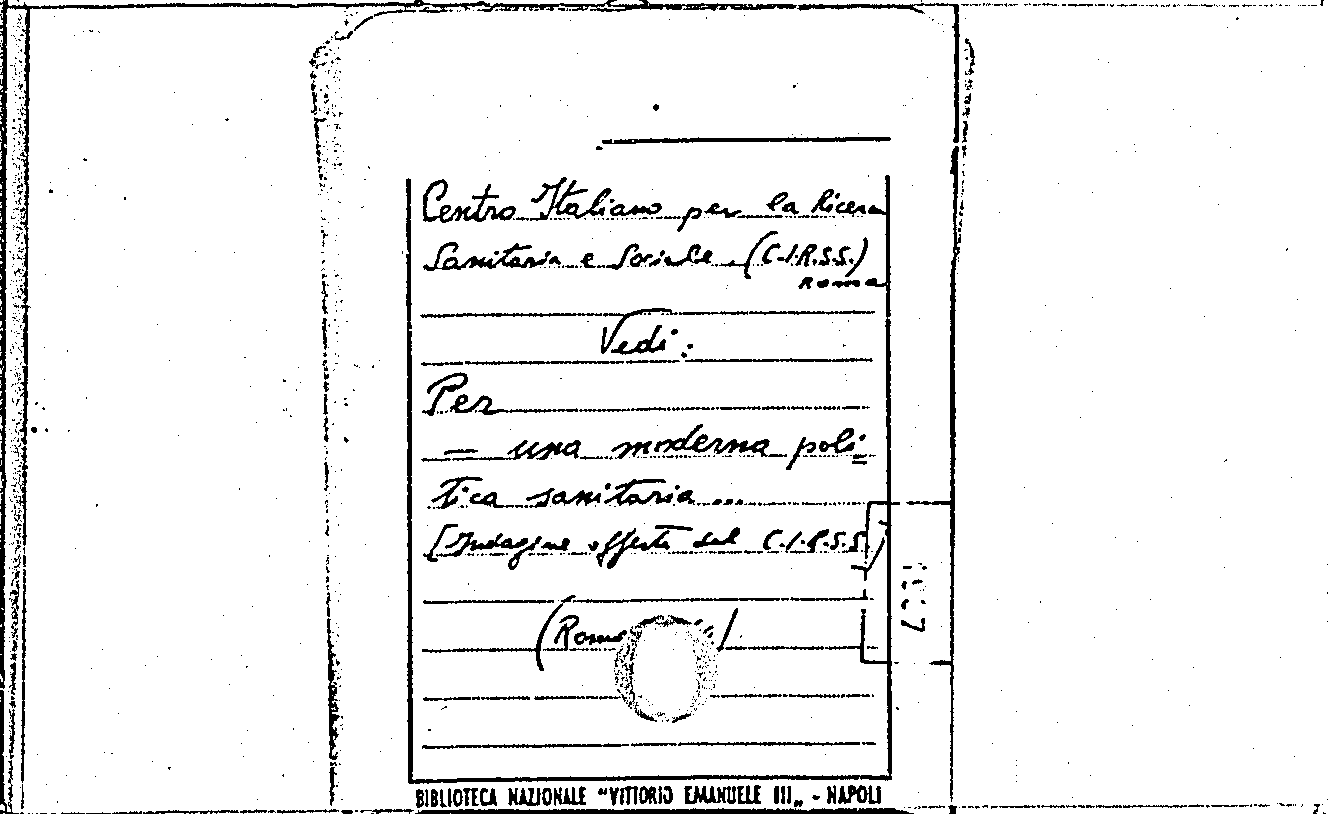 Centro Italiano per la Ricerca
Sanitaria e Sociale. (C.I.R.S.S.)
Roma
Vedi:
Per
— una moderna poli=
tica sanitaria...
[Indagine offerta dal C.I.R.S.S.]
(Roma )
BIBLIOTECA NAZIONALE "VITTORIO EMANUELE III„ - NAPOLI